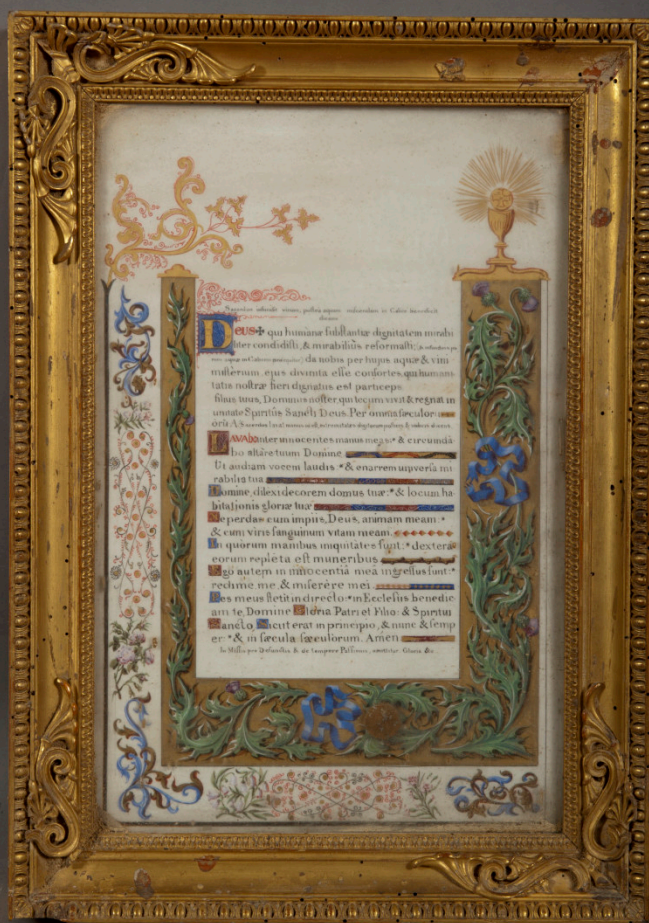 Deus ✠ qui humanæ substantiæ dignitatem mirabi
liter condidisti, & mirabilius reformasti:
da nobis per hujus aquæ & vini
misterium, ejus divinita esse consortes, qui humani
tatis nostræ fieri dignatus est particeps
filius tuus, Dominus noster, qui tecum vivit & regnat in
unitate Spiritûs Sancti Deus. Per omnia sæculor
Lavabo inter innocentes manus meas: * & circumda
bo altare tuum Domine
Ut audiam vocem laudis * & enarrem universa mi
rabilia tua
Domine, dilexi decorem domus tuæ: * & locum ha
bitationis gloriæ tuæ
Ne perdas cum impiis, Deus, animam meam: *
& cum viris sanguinum vitam meam.
In quorum manibus iniquitates sunt: * dextera
eorum repleta est muneribus
Ego autem in innocentiâ meâ ingressus sunt: *
redime me, & miserére mei
Pes meus stetit in directo: * in Ecclesiis benedic
am te, Domine Gloria Patri et Filio: & Spiritui
Sancto Sicut erat in principio, & nunc & semp
er: * & in sæcula sæculorum. Amen